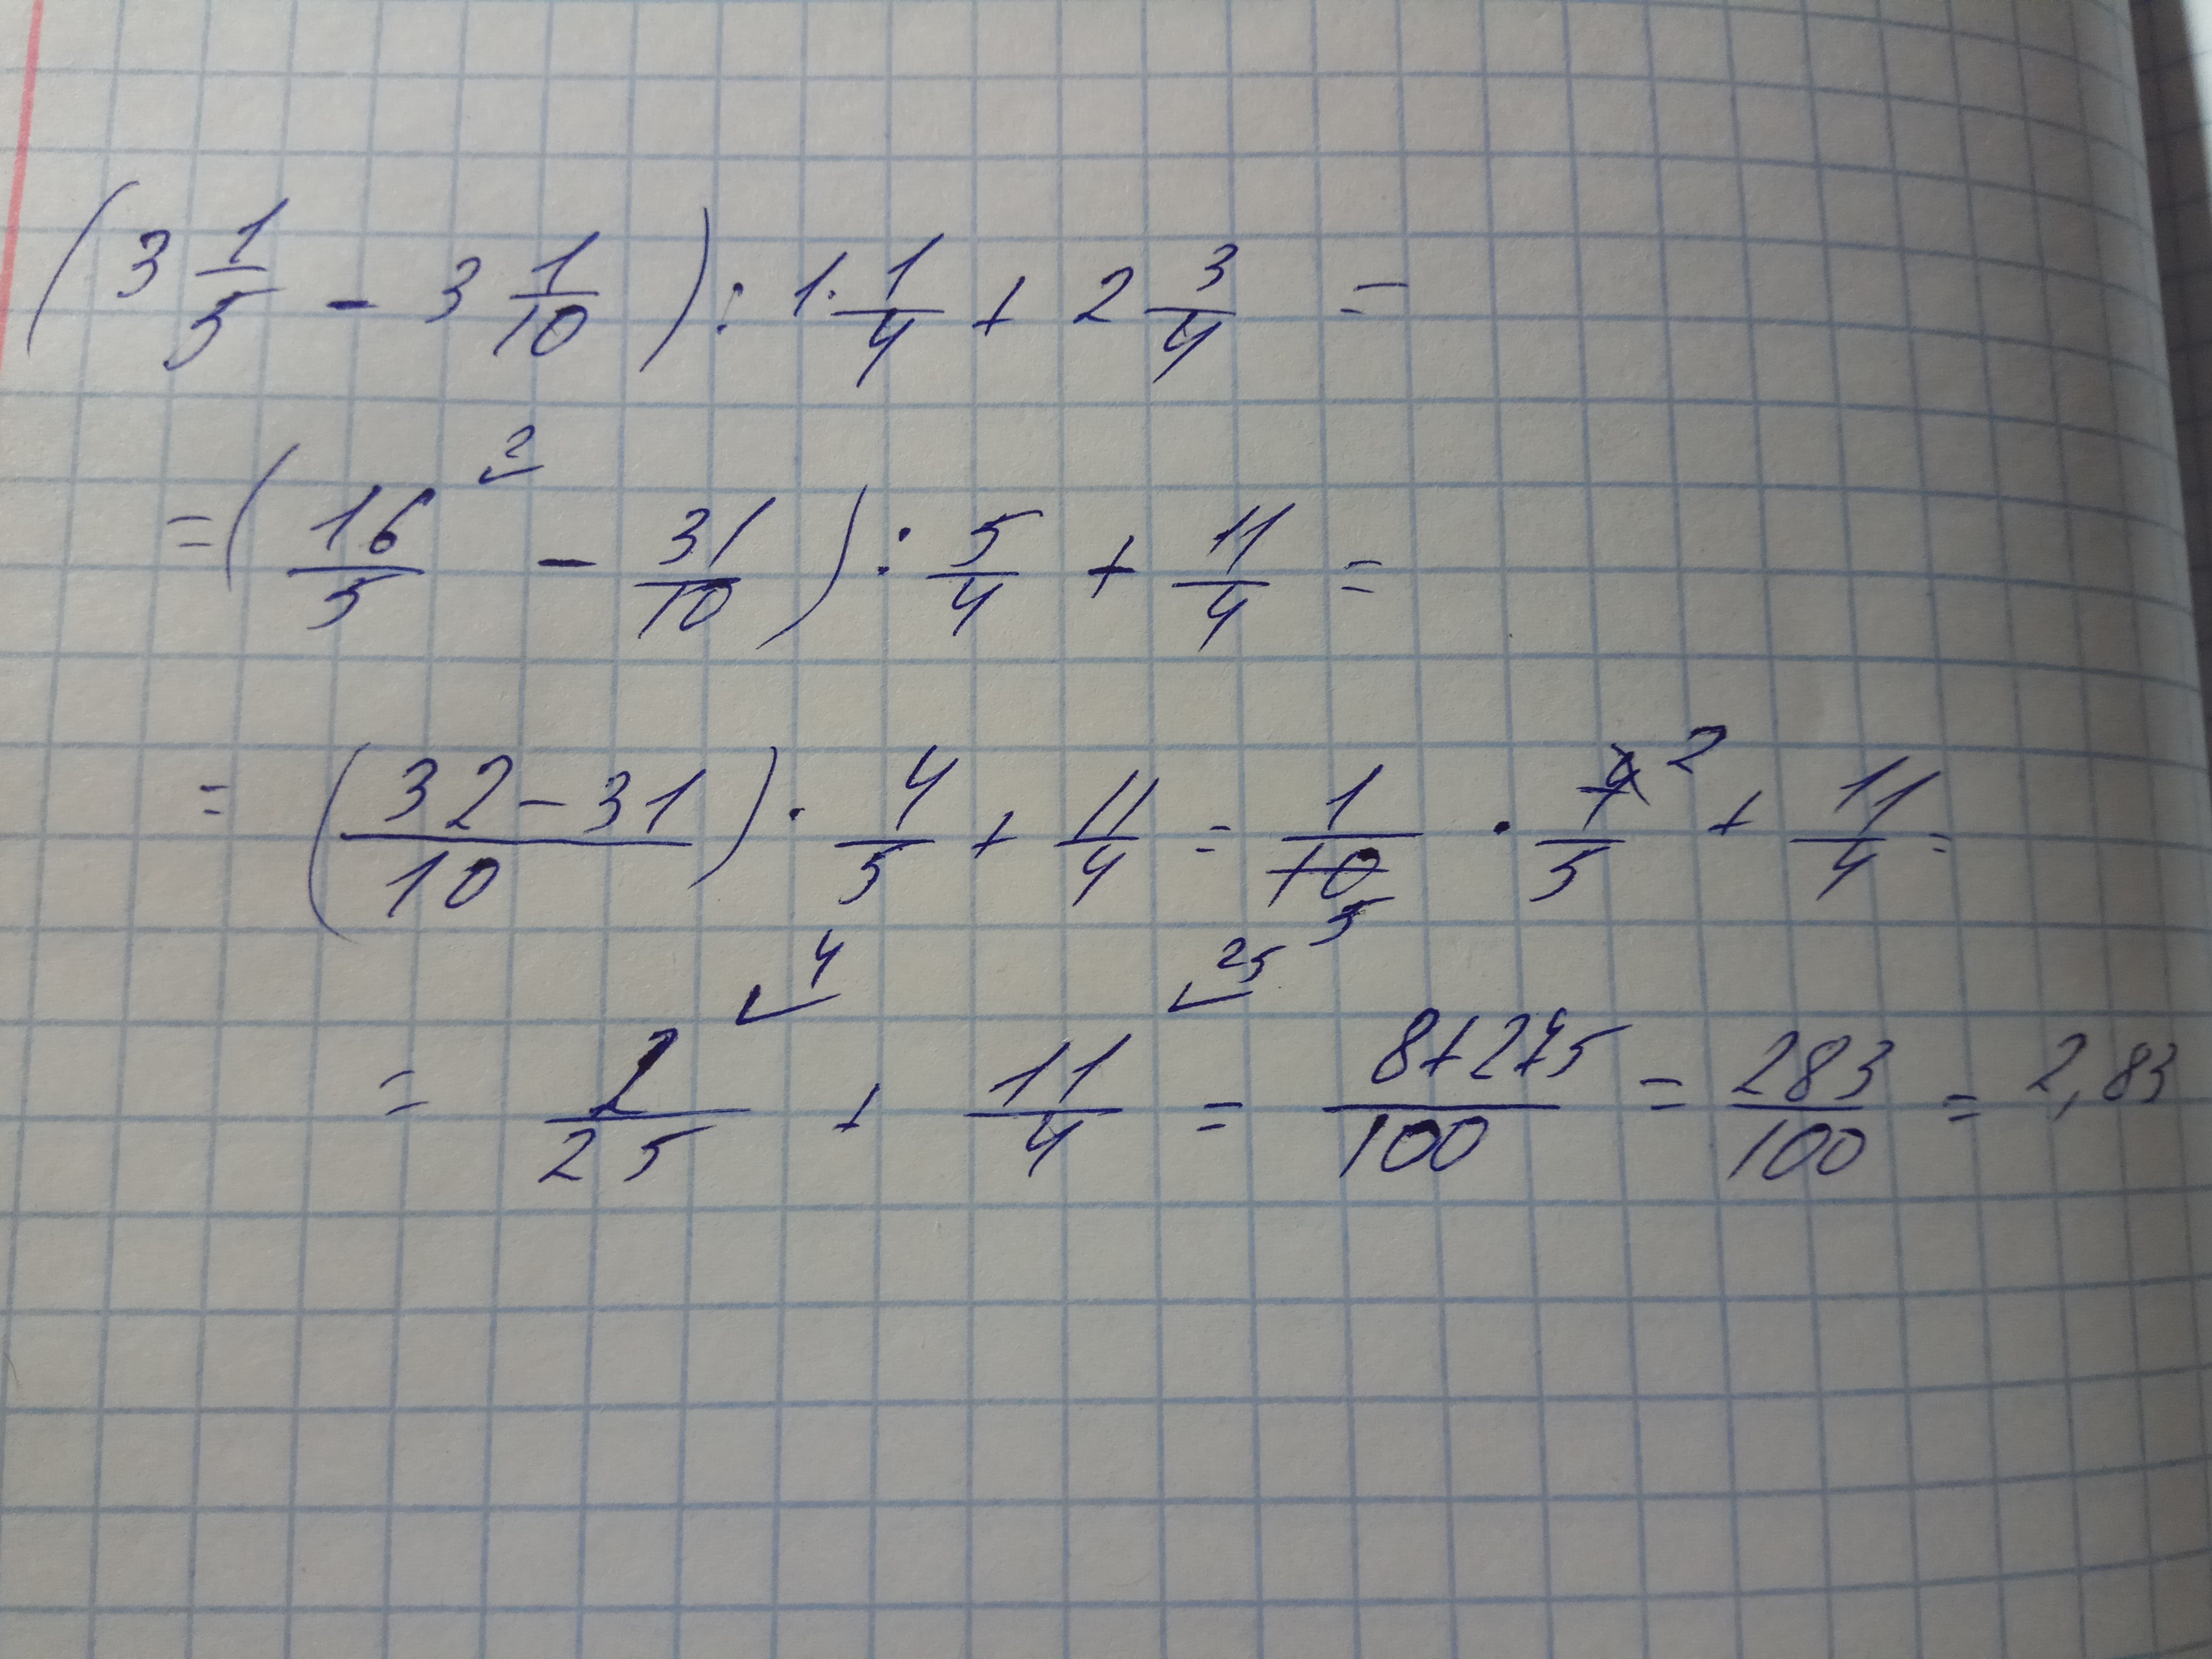 (3 1/5 - 3 1/10) : 1 1/4 + 2 3/4 =
= (16/5 ² - 31/10) : 5/4 + 11/4 =
= (32-31/10) · 4/5 + 11/4 = 1/10 5 · 4/5 2 + 11/4 =
= 2/25 4 + 11/4 25 = 8+275/100 = 283/100 = 2,83